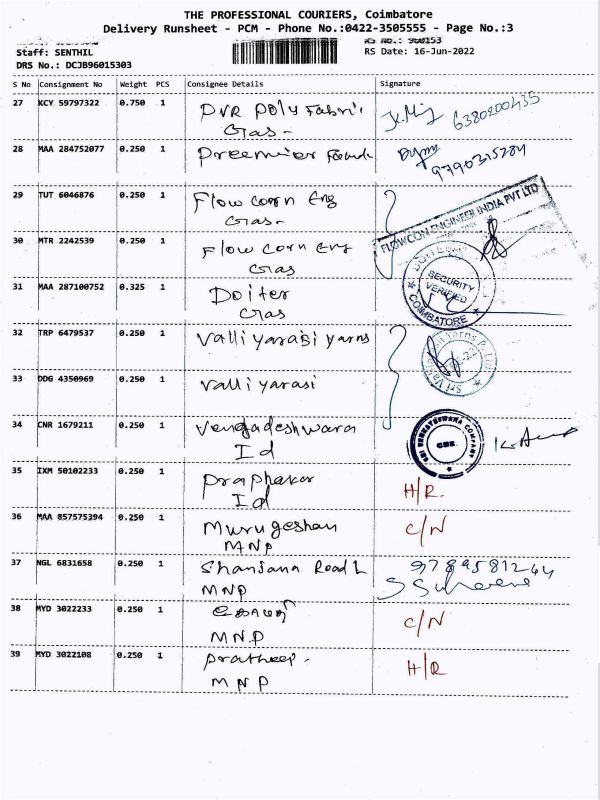 THE PROFESSIONAL COURIERS, Coimbatore
Delivery Runsheet - PCM - Phone No.:0422-3505555 - Page No.:3
Staff: SENTHIL
RS Date: 16-Jun-2022
DRS No.: DCJB96015303
S No Consignment No Weight PCS Consignee Details Signature
27 KCY 59797322 0.750 1 PVR Poly Fabri
Gas - 6380200435
28 MAA 284752077 0.250 1 Preemier 9790315284
29 TUT 6046876 0.250 1 Flow corn Eng
Gas -
FLOWCON ENGINEER INDIA PVT LTD
30 MTR 2242539 0.250 1 Flow corn Eng
Gas
31 MAA 287100752 0.325 1 Doiter
Gas
SECURITY
VERIFIED
COIMBATORE
32 TRP 6479537 0.250 1 Valliyarasi yarns
33 DDG 4350969 0.250 1 Valliyarasi
34 CNR 1679211 0.250 1 Vengadeshwara
Id
SRI VENKATESWARA COMPANY
CBE.
35 IXM 50102233 0.250 1 Praphakar
Id H/R.
36 MAA 857575394 0.250 1 Murugeshan
MNP C/N
37 NGL 6831658 0.250 1 Shansana Road L
MNP 9789581244
38 MYD 3022233 0.250 1
MNP C/N
39 MYD 3022108 0.250 1 Pratheep -
MNP H/R